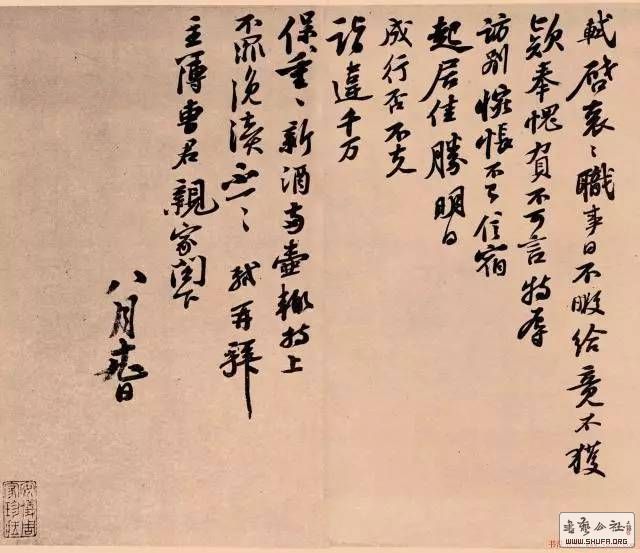 軾啓袞〻職事日不暇給竟不獲
款奉愧負不可言特辱
訪別惋悵不已信宿
起居佳勝明日
成行否不克
詣違千万
保重〻新酒兩壺輙持上
不罪浼瀆不一〻軾再拜
主簿曹君親家閤下
八月日
WWW.SHUFA.ORG